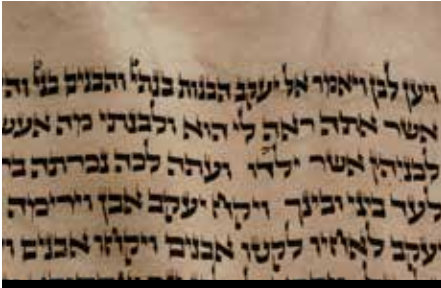 ויען לבן ויאמר אל יעקב הבנות בנתי והבנים בני וה
אשר אתה ראה לי הוא ולבנתי מה אעש
לבניהן אשר ילדו ועתה לכה נכרתה בר
לעד ביני ובינך ויקח יעקב אבן וירימה
יעקב לאחיו לקטו אבנים ויקחו אבנים ו